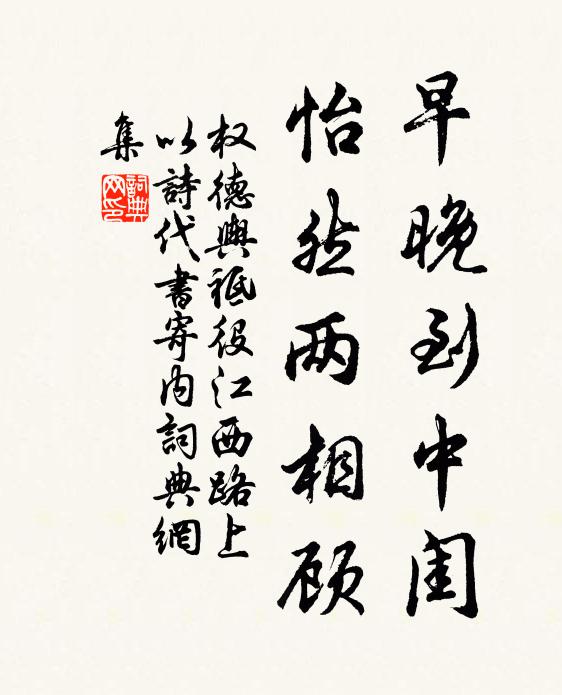 早晚到中闺
怡然两相顾
权德舆祗役江西路上
以詩代書寄内詞典網
集
詞典网印